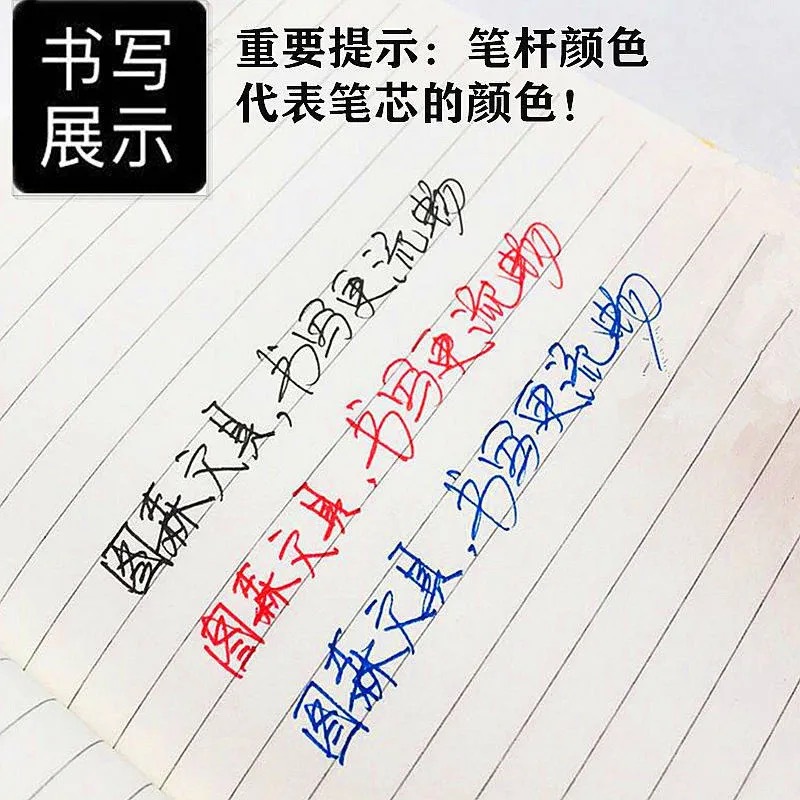 书写
展示
重要提示：笔杆颜色
代表笔芯的颜色！
图森文具，书写更流畅
图森文具，书写更流畅
图森文具，书写更流畅